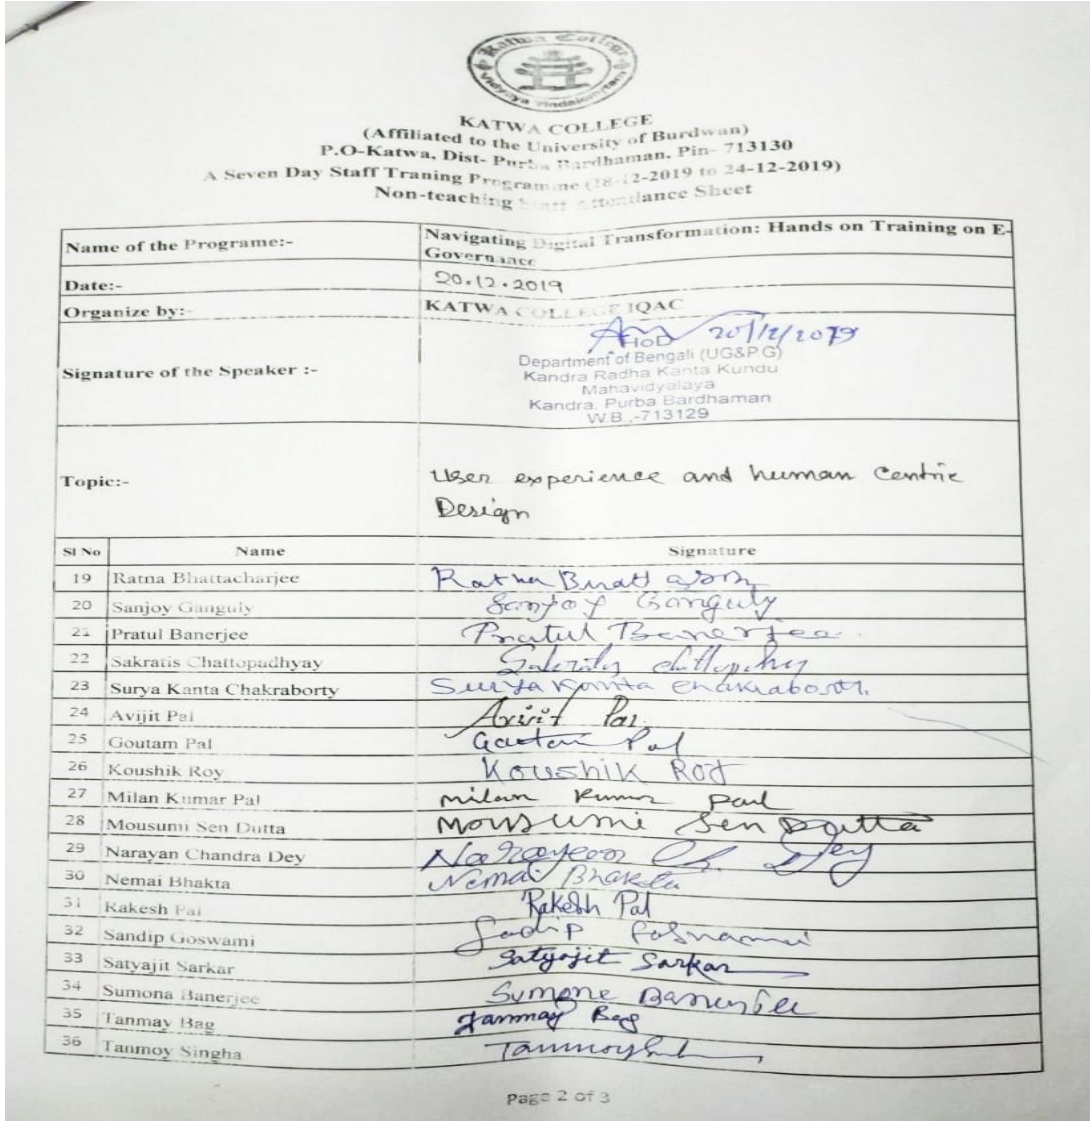 Katwa College
Vidyaya Vindateamritam
KATWA COLLEGE
(Affiliated to the University of Burdwan)
P.O-Katwa, Dist- Purba Bardhaman, Pin- 713130
A Seven Day Staff Traning Programme (18-12-2019 to 24-12-2019)
Non-teaching Staff Attendance Sheet
Name of the Programe:- Navigating Digital Transformation: Hands on Training on E-
Governance
Date:- 20.12.2019
Organize by:- KATWA COLLEGE IQAC
20/12/2019
HoD
Department of Bengali (UG&P.G)
Kandra Radha Kanta Kundu
Mahavidyalaya
Kandra, Purba Bardhaman
W.B.,-713129
Signature of the Speaker :-
Topic:- User experience and human Centric
Design
Sl No Name Signature
19 Ratna Bhattacharjee Ratna
20 Sanjoy Ganguly Sanjoy Ganguly
21 Pratul Banerjee Pratul Banerjee
22 Sakratis Chattopadhyay
23 Surya Kanta Chakraborty Surya Kanta Chakraborty
24 Avijit Pal Avijit Pal
25 Goutam Pal Goutam Pal
26 Koushik Roy Koushik Roy
27 Milan Kumar Pal milan Kumar paul
28 Mousumi Sen Dutta Mousumi Sen Dutta
29 Narayan Chandra Dey Narayan Ch. Dey
30 Nemai Bhakta Nemai Bhakta
31 Rakesh Pal Rakesh Pal
32 Sandip Goswami Sadip Goswami
33 Satyajit Sarkar Satyajit Sarkar
34 Sumona Banerjee Sumone Banerjee
35 Tanmay Bag Tanmay Bag
36 Tanmoy Singha Tanmoy
Page 2 of 3